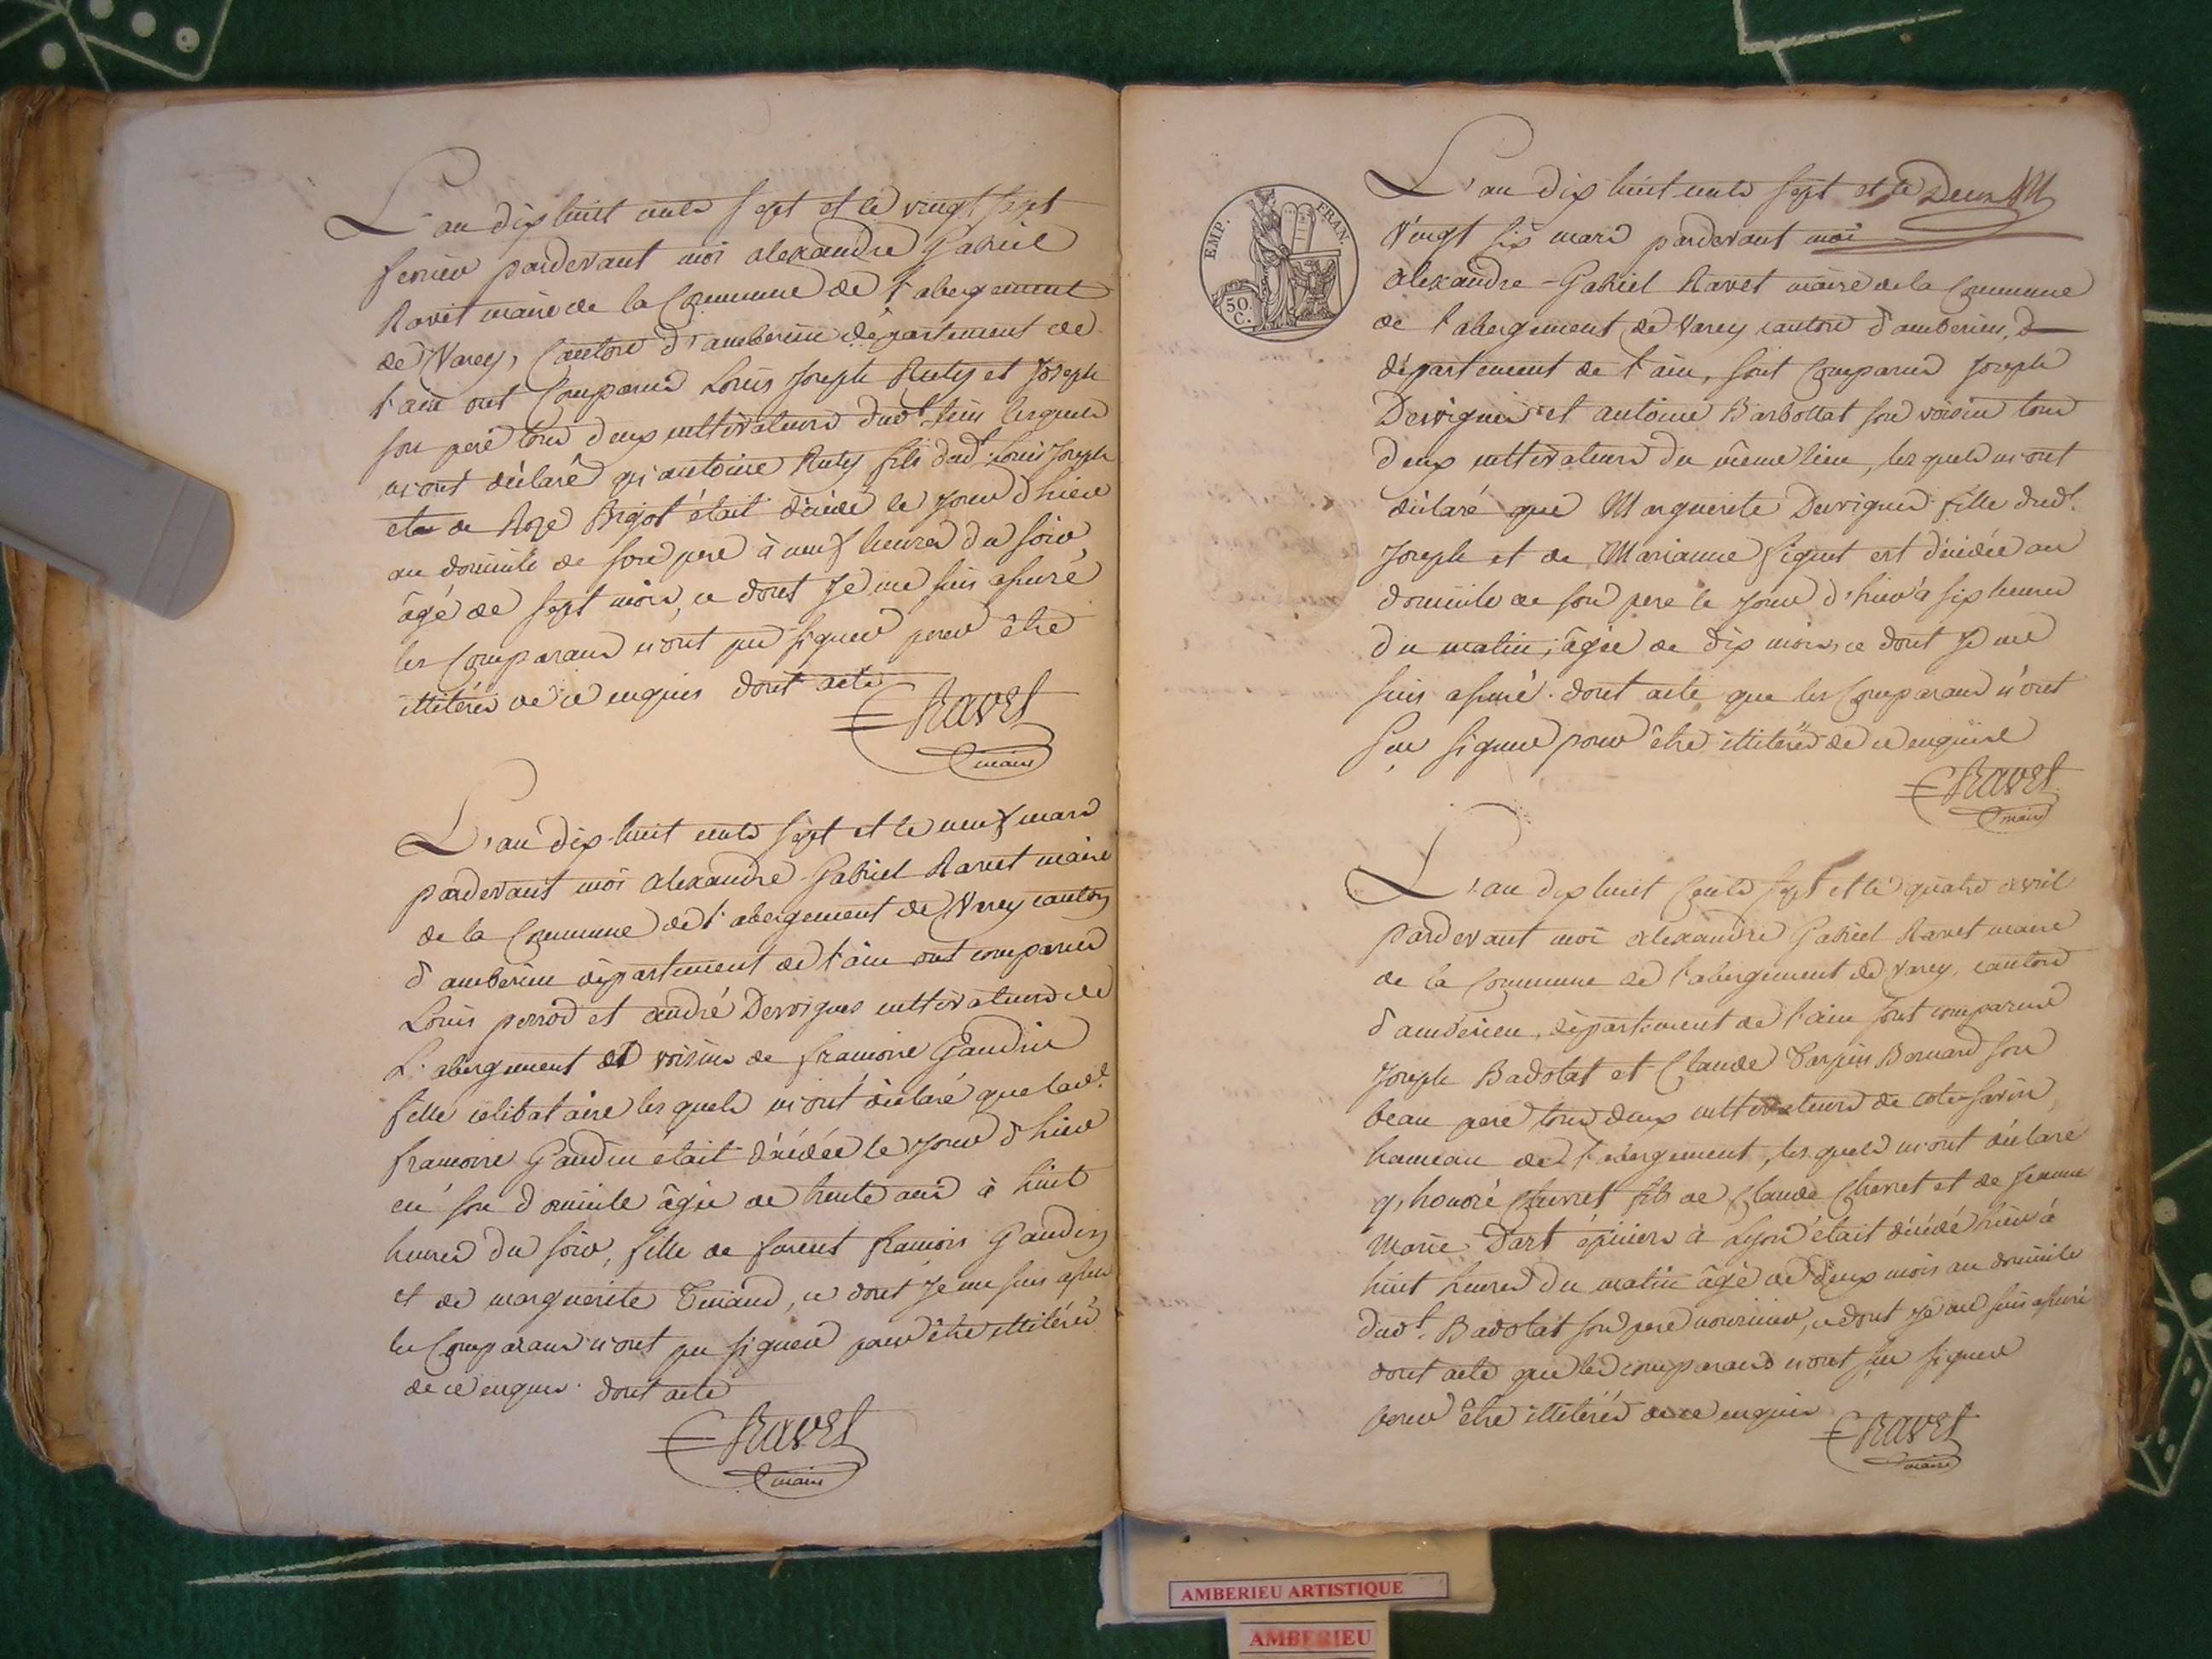 L'an dix huit cents sept et le vingt sept
fevrier pardevant moi alexandre Gabriel
Ravet maire de la Commune de l'abergement
de Varey, Canton d'amberieu département de
l'ain ont Comparus Louis Joseph Ruty et Joseph
son pere tous deux cultivateurs dud.t lieu lesquels
m'ont déclaré qu'antoine Ruty fils dud.t Louis Joseph
et de Roze Brigot était décédé le Jour d'hier
au domicile de son pere à neuf heures du soir,
âgé de sept mois, ce dont Je me suis assuré
les Comparans n'ont pu signer pour être
illitérés de ce enquis dont acte
Ravet
maire
L'an dix huit cents sept et le neuf mars
pardevant moi alexandre Gabriel Ravet maire
de la Commune de l'abergement de Varey canton
d'amberieu département de l'ain ont comparus
Louis perrod et andré Dervignes cultivateurs de
L'abergement et voisins de francoise Gaudin
fille célibataire lesquels m'ont déclaré que lad.e
francoise Gaudin était décédée le Jour d'hier
en son domicile âgée de trente ans à huit
heures du soir, fille de francois Gaudin
et de marguerite, ce dont Je me suis assuré
les Comparans n'ont pu signer pour être illitérés
de ce enquis. dont acte
Ravet
maire
EMP. FRAN.
50 C.
L'an dix huit cents sept et le Deux
Vingt six mars pardevant moi
alexandre - Gabriel Ravet maire de la Commune
de l'abergement de Varey canton d'amberieu,
département de l'ain, sont Comparus Joseph
Dervignes et antoine Barbollat son voisin tous
deux cultivateurs du même lieu, lesquels m'ont
déclaré que Marguerite Dervignes fille dud.t
Joseph et de Marianne Siguet est décédée au
domicile de son pere le Jour d'hier à six heures
du matin, âgée de dix mois, ce dont Je me
suis assuré. dont acte que les Comparans n'ont
sçu signer pour être illitérés de ce enquis
Ravet
maire
L'an dix huit Cents sept et le quatre avril
pardevant moi alexandre Gabriel Ravet maire
de la Commune de l'abergement de Varey, canton
d'amberieu, département de l'ain sont comparus
Joseph Badolat et Claude Bernard son
beau pere tous deux cultivateurs de cote-savin,
hameau de l'abergement, lesquels m'ont déclaré
q'honoré Chevret fils de Claude Chevret et de Jeanne
Marie Dart épiciers à Lyon était décédé hier à
huit heures du matin âgé de deux mois au domicile
dud.t Badolat son pere nouricier, ce dont Je me suis assuré
dont acte que les comparans n'ont sçu signer
pour être illitérés de ce enquis
Ravet
maire
AMBERIEU ARTISTIQUE
AMBERIEU